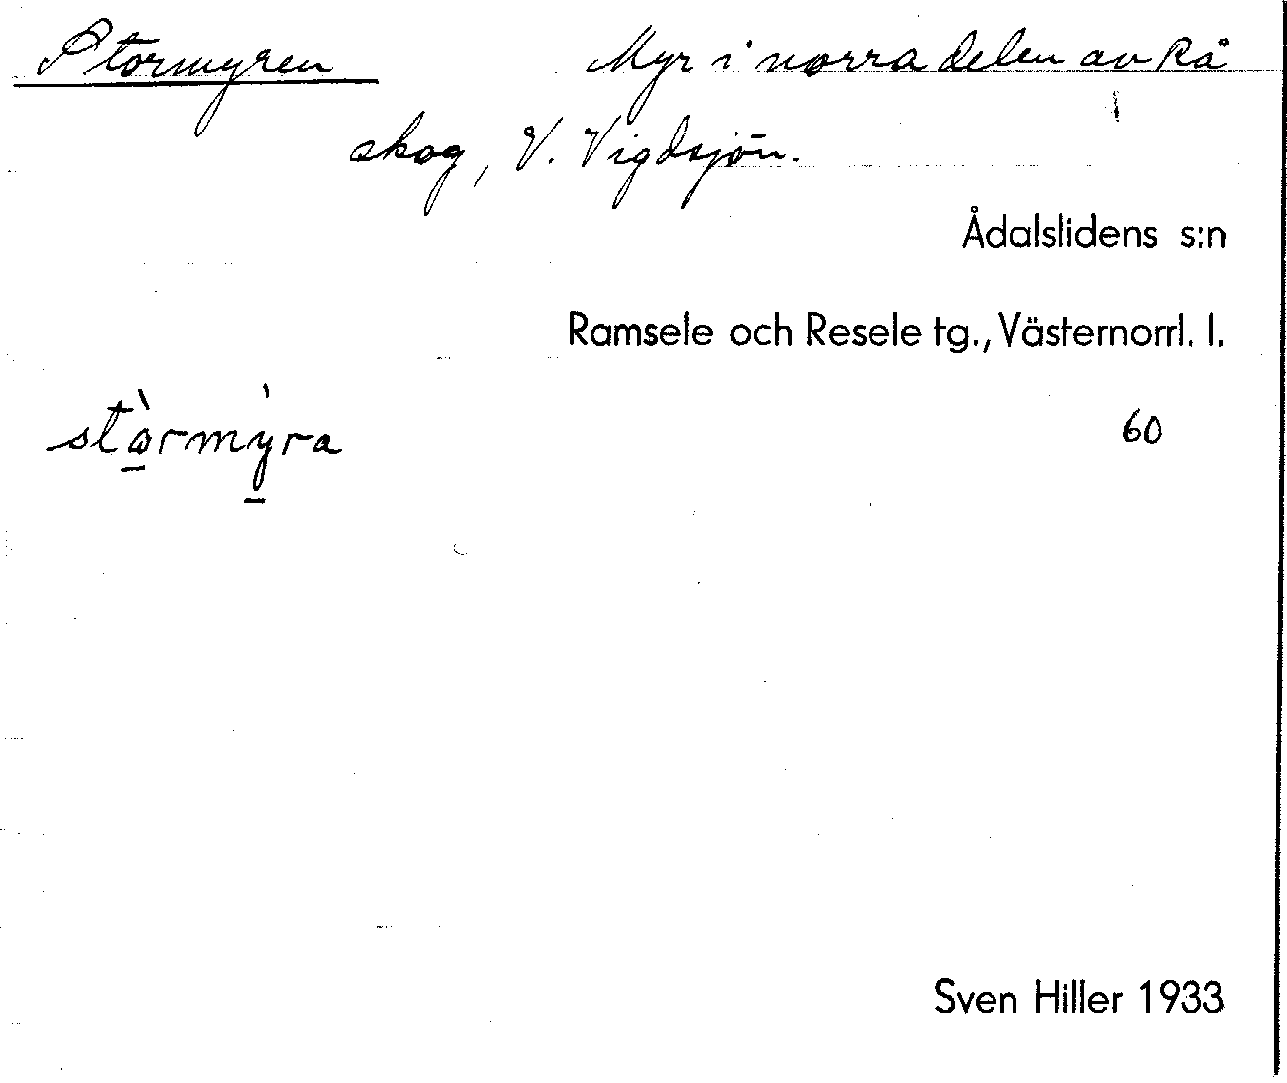 Stormyren Myr i norra delen av Rå
skog, V. Vigdsjön.
Ådalslidens s:n
Ramsele och Resele tg., Västernorrl. l.
stò̱rmỳ̱ra
60
Sven Hiller 1933